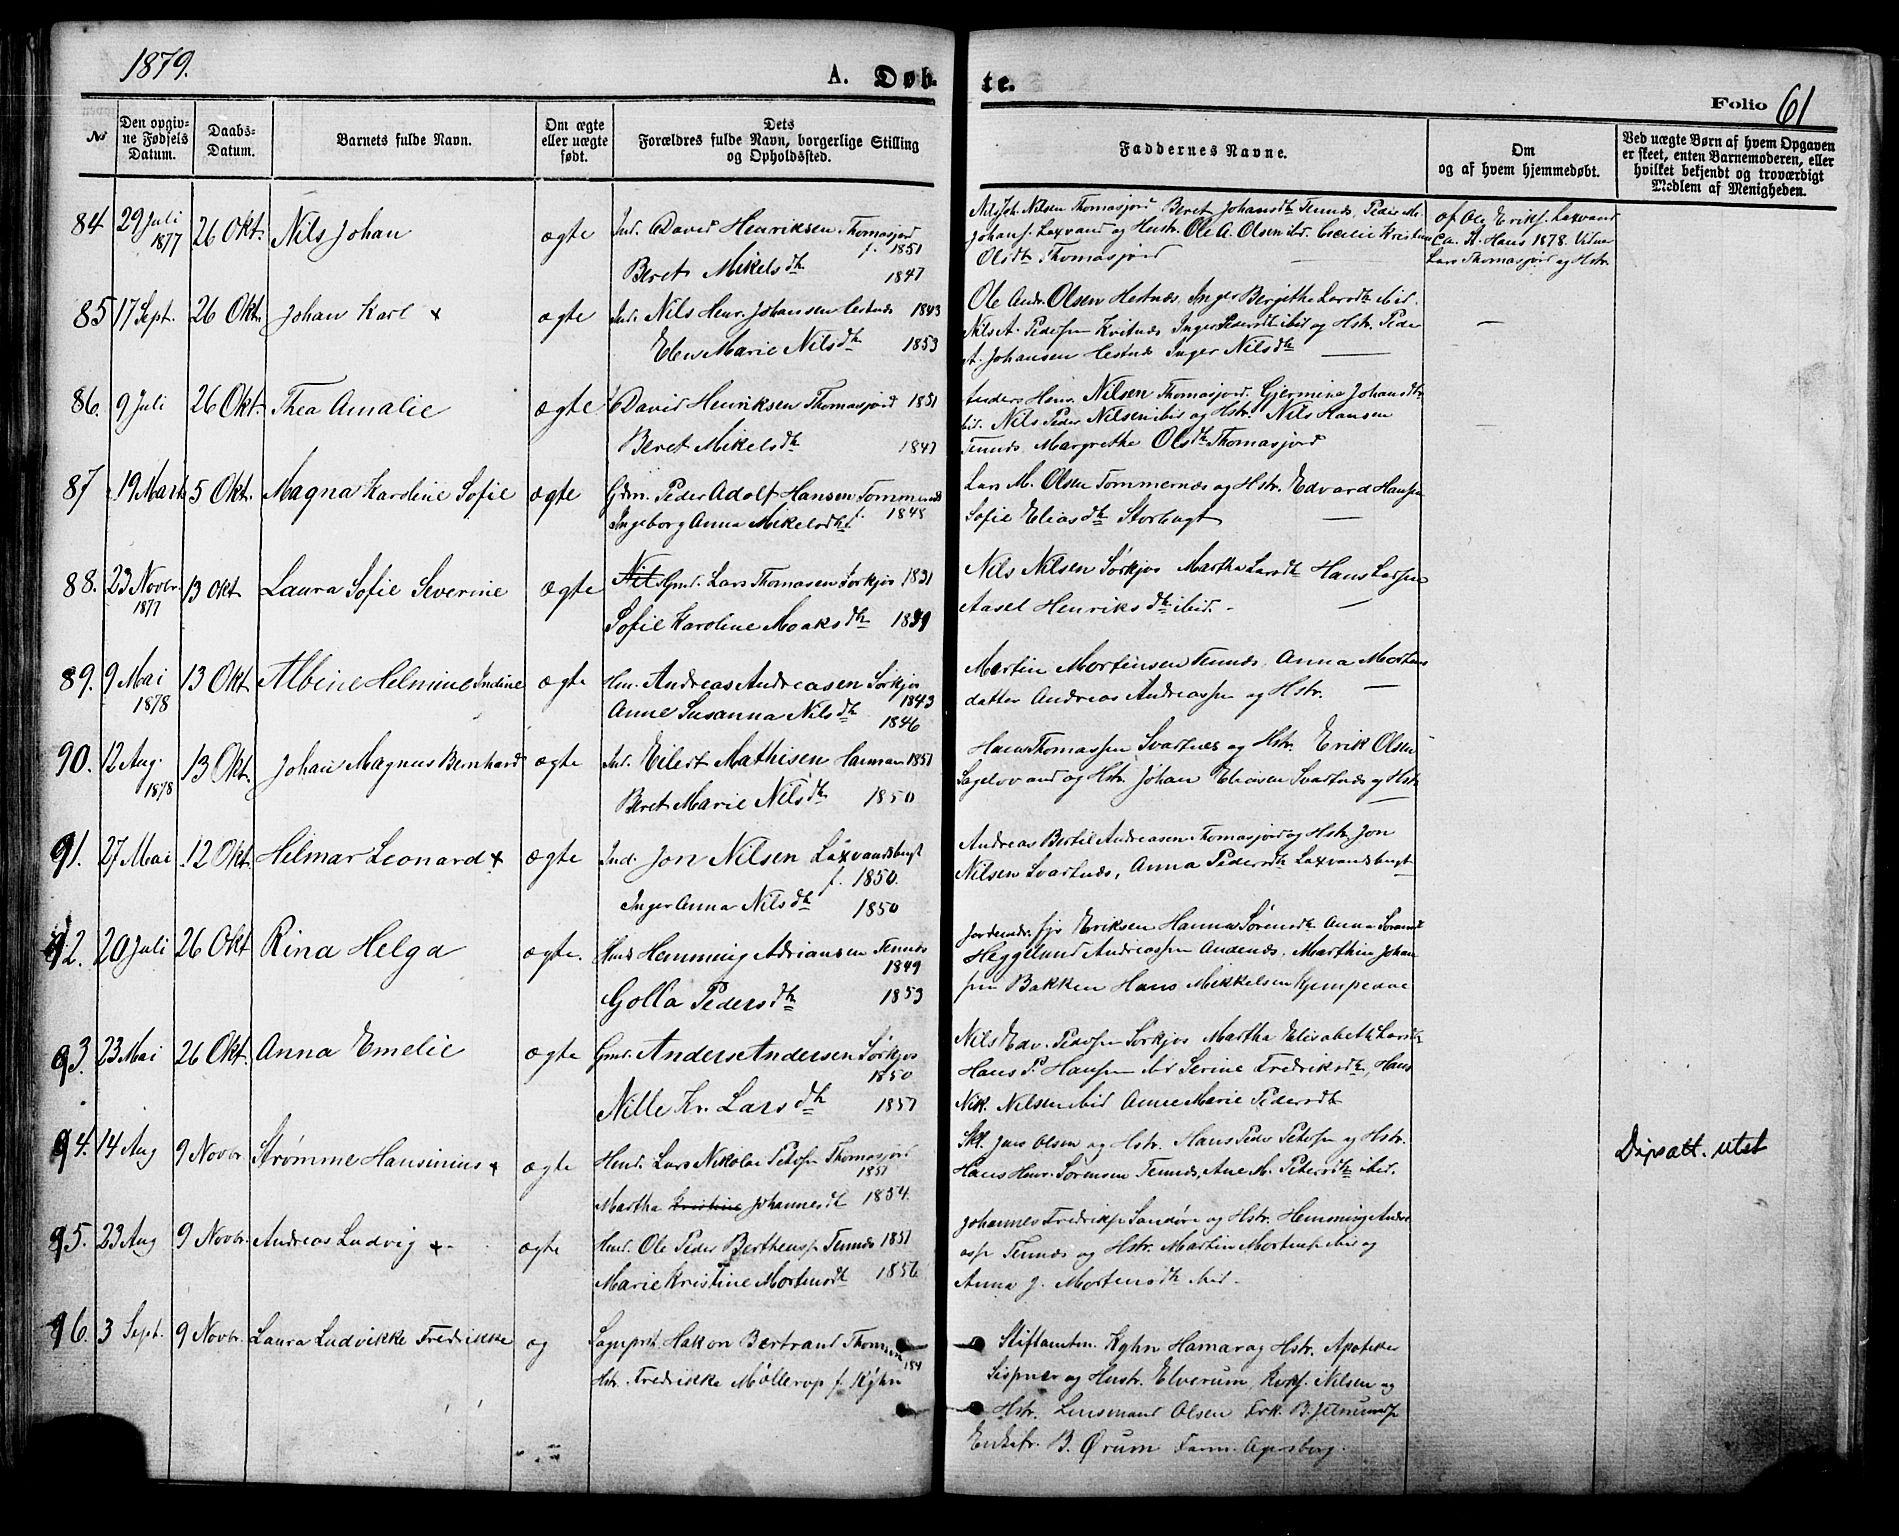 1879.
A. Døb- te.
Folio 61
No
Den opgiv-
ne Fødsels
Datum.
Daabs-
Datum.
Barnets fulde Navn.
Om ægte
eller uægte
født.
Dets
Forældres fulde Navn, borgerlige Stilling
og Opholdssted.
Faddernes Navne.
Om
og af hvem hjemmedøbt.
Ved uægte Børn af hvem Opgaven
er skeet, enten Barnemoderen, eller
hvilket bekjendt og troværdigt
Medlem af Menigheden.
84 29 Juli 1877 26 Okt. Nils Johan ægte Ind. David Henriksen Thomasjord f. 1851
Beret Mikelsdtr 1847
Nils Joh. Nilsen Thomasjord Beret Johansdtr Tennes, Peder M.
Johans. Laxvand og Hustr. Ole A. Olsen ibd. Cecilie Kristine
Olsdtr Thomasjord
af Ole Eriks. Laxvand
ca. St. Hans 1878. Vidne
Lars Thomasjord og Hstr.
85 17 Sept. 26 Okt. Johan Karl + ægte Ind. Nils Henr. Johansen Hestnes 1843
Elen Marie Nilsdtr 1853
Ole Andr. Olsen Hestnæs, Inger Bergithe Larsdtr ibid.
Nils A. Pedersen Kvitnæs Inger Pedersdtr ibid og Hstr. Peder
A. Johansen Hestnæs Inger Nilsdtr —
86. 9 Juli 26 Okt. Thea Amalie ægte David Henriksen Thomasjord 1851
Beret Mikelsdtr 1847
Henr. Nilsen Thomasjord. Gjermine Johansdtr
ibid. Nils Peder Nilsen ibid og Hstr. Nils Hansen
Tennes, Margrethe Olsdtr Thomasjord
87 19 Marts 5 Okt. Magna Karoline Sofie ægte Gdm. Peder Adolf Hansen Tømmernes
Ingeborg Anna Mikelsdtr f. 1848
Lars M. Olsen Tømmernæs og Hstr. Edvard Hansen
Sofie Eliasdtr Storbugt —
88. 23 Novbr. 1877 13 Okt Laura Sofie Severine ægte Nils Gmd. Lars Thomasen Sørkjos 1831
Sofie Karoline Moaksdtr 1839
Nils Nilsen Sørkjos Martha Larsdtr Hans Larsen
Aasel Henriksdtr ibid. —
89. 9 Mai 1878 13 Okt. Albine Helmine Indine ægte Hm. Andreas Andreasen Sørkjos 1843
Anne Susanna Nilsdtr 1846
Martin Mortensen Tennes. Anna Mortens
datter Andreas Andreassen og Hstr. —
90. 12 Aug. 1878 13 Okt. Johan Magnus Bernhard ægte Ind. Eilert Mathisen 1851
Beret Marie Nilsdtr 1850
Hans Thomassen Svartnes og Hstr. Erik Olsen
Sagelvvand og Hstr. Johan Eliasen Svartnes og Hstr.
91. 27 Mai 12 Okt. Helmar Leonard + ægte Ind. Jon Nilsen Laxvandsbugt f. 1850.
Inger Anna Nilsdtr 1850
Andreas Bertil Andreasen Thomasjord og Hstr. Jon
Nilsen Svartnæs, Anna Pedersdtr Laxvandsbugt
92. 20 Juli 26 Okt Rina Helga ægte. Hmd Hemming Adriansen Tennes 1849
Golla Pedersdtr 1853
Eriksen Hanna Sørensdtr Anna Sørensdtr
Heggelund Andreassen Andenæs, Marthin Johan
sen Bakken Hans Mikkelsen
93. 23 Mai 26 Okt. Anna Emelie ægte Gmd. Anders Andersen Sørkjos 1850
Nille Kr. Larsdtr 1851
Nils Edv. Pedersen Sørkjos Martha Elisabeth Larsdtr
Hans P. Hansen ibid Serine Fredriksdtr, Hans
Nik. Nilsen ibid Anne Marie Pedersdtr
94. 14 Aug 9 Novbr. Strømme Hansinius + ægte Hmd. Lars Nikolai Peders. Thomasjord 1851
Martha Kristine Johannesdtr 1854.
Skl. Jens Olsen og Hstr. Hans Peder Peders. og Hstr.
Hans Henr. Sørensen Tennes, Ane M. Pedersdtr ibid.
Dåpsatt. utst
95. 23 Aug 9 Novbr. Andreas Ludvig + ægte Hmd. Ole Peder Berthens. Tennes 1851
Marie Kristine Mortensdtr 1856
Johannes Fredriks. Sandøre og Hstr. Hemming Andre
as. Tennes og Hstr. Martin Mortens. ibid og
Anna J. Mortensdtr ibid.
96. 3 Sept. 9 Novbr. Laura Ludvikke Fredrikke og Sognprst. Hakon Bertrand Thomsen 184
Hstr. Fredrikke Møllerop f. Kyhn
Stiftamtm. Kyhn Hamar og Hstr. Apotheker
og Hustr. Elverum, Nilsen og
Hstr. Lensmand Olsen Frk. B.
Enkefr. B. Ørum Farm.